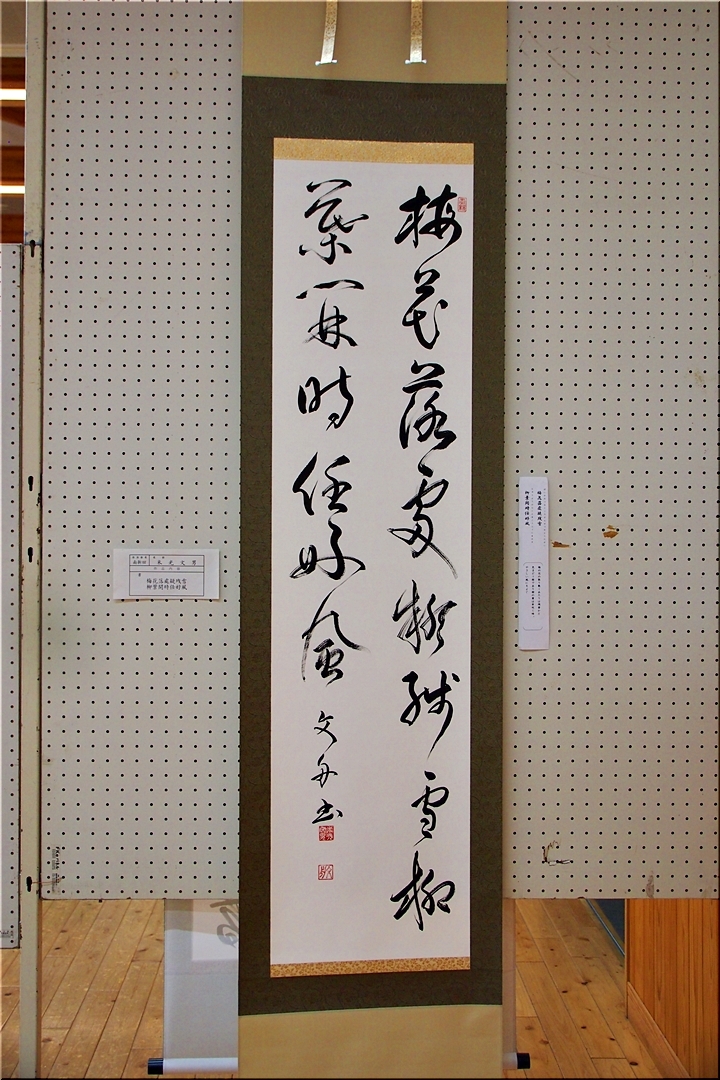 梅花落處疑残雪柳
葉開時任好風
文舟書
梅花落處疑残雪
柳葉開時任好風
梅花落處疑残雪
柳葉開時任好風